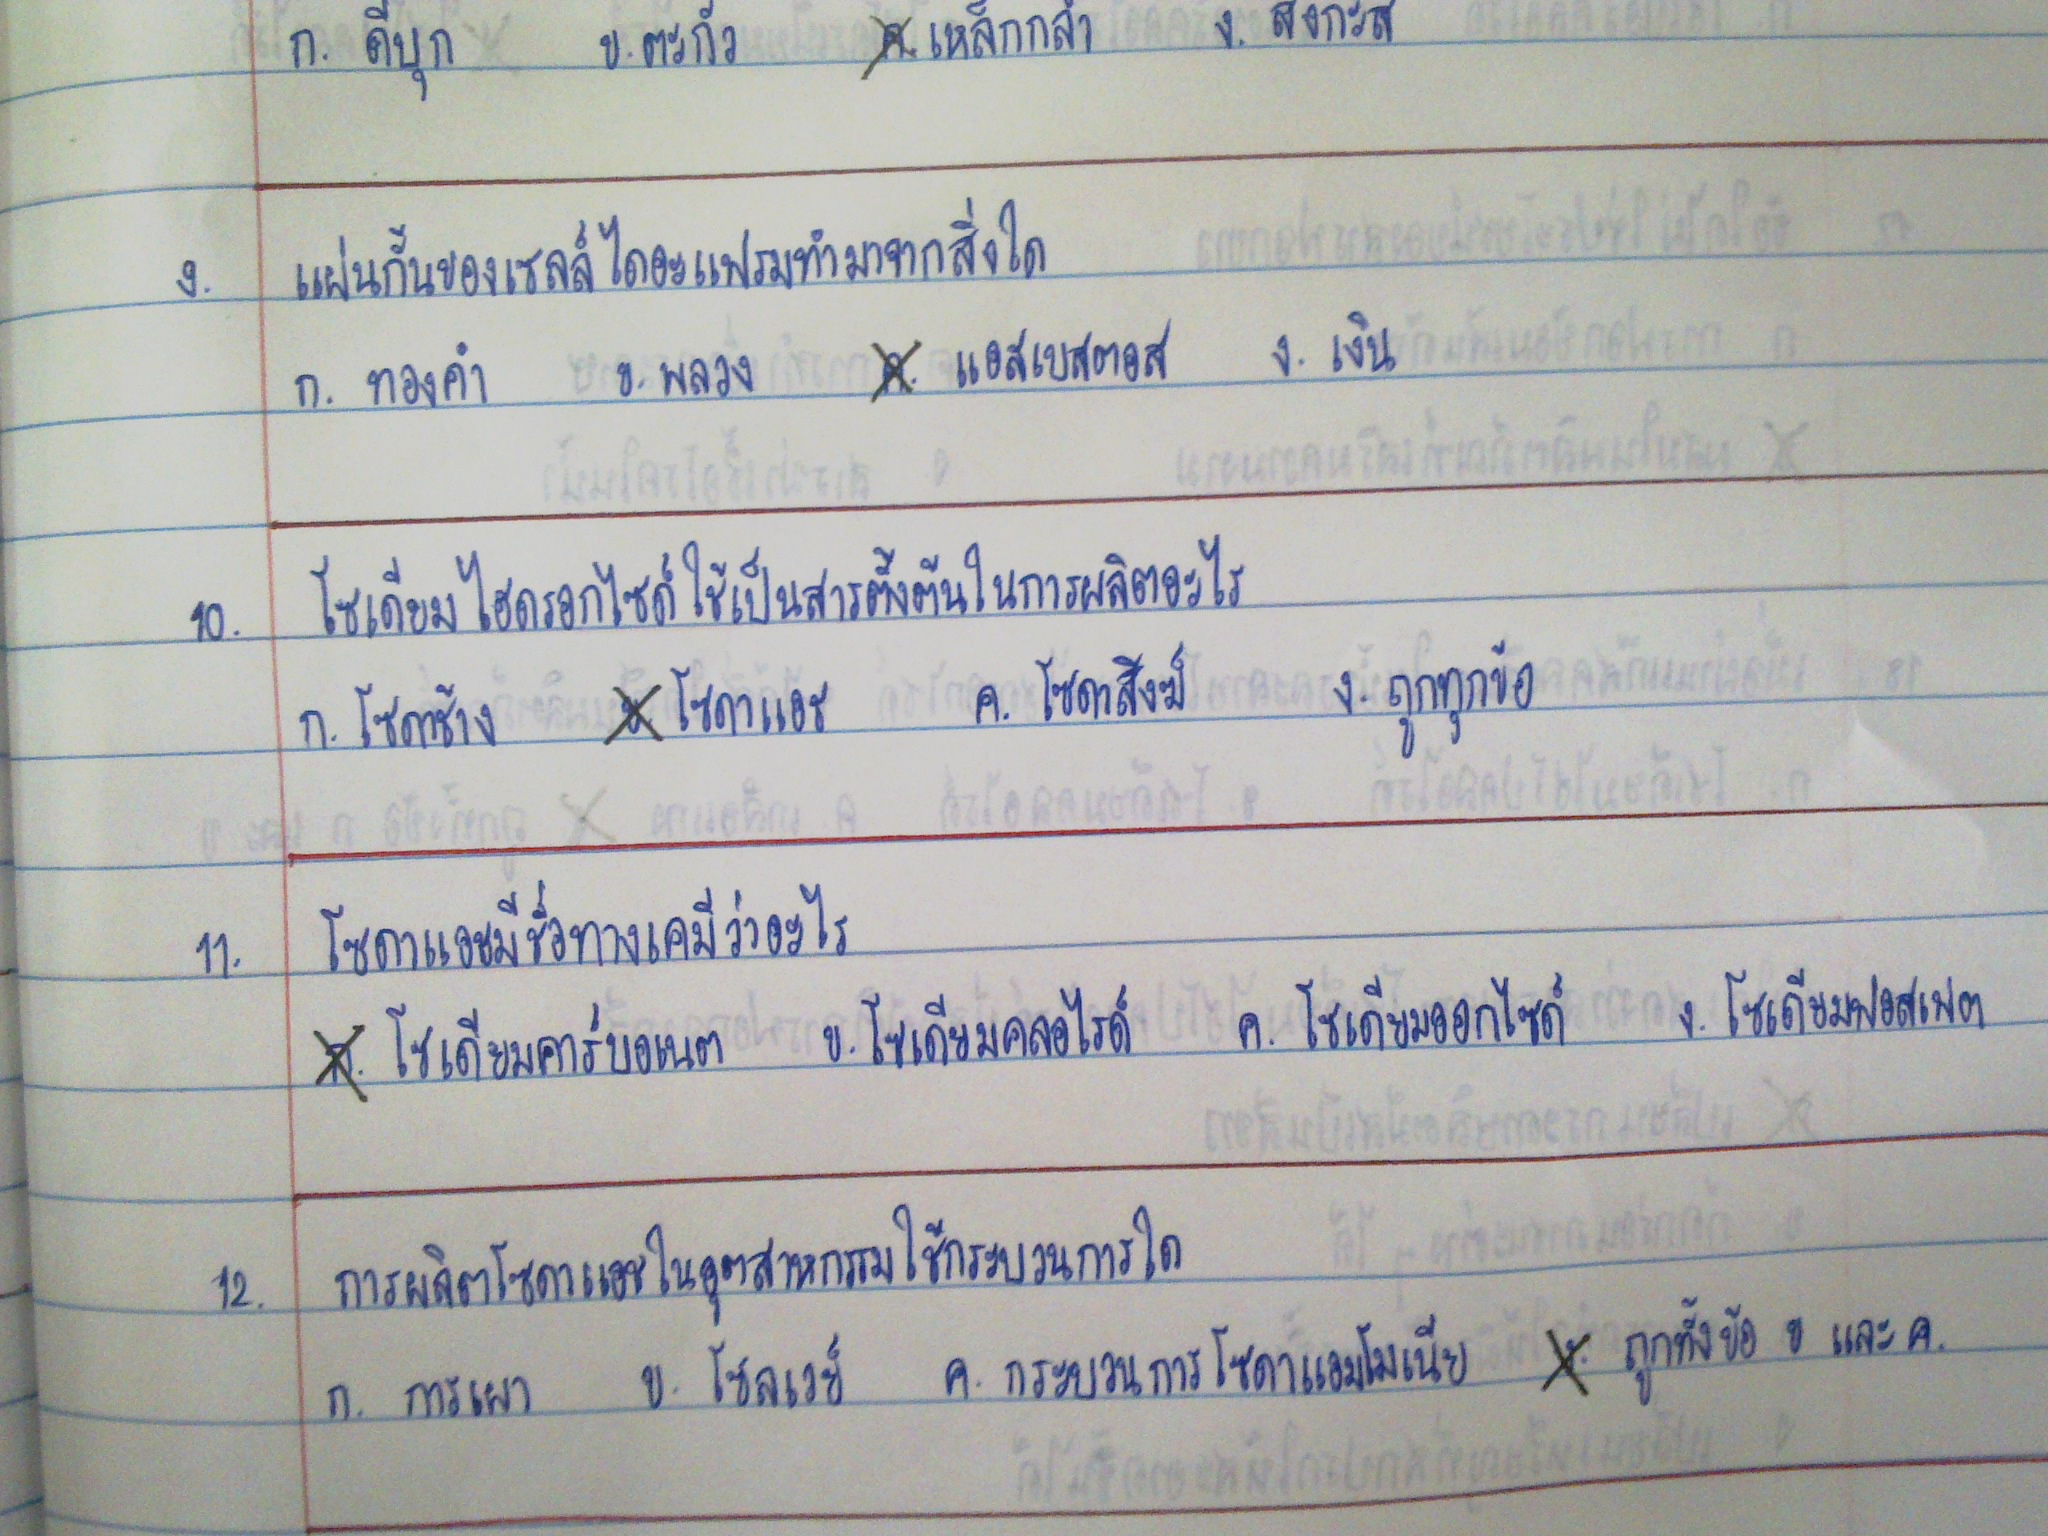 ก. ดีบุก ข. ตะกั่ว ค. เหล็กกล้า ง. สังกะสี
9. แผ่นกั้นของเซลล์ไดอะแฟรมทำมาจากสิ่งใด
ก. ทองคำ ข. พลวง ค. แอสเบสตอส ง. เงิน
10. โซเดียมไฮดรอกไซด์ใช้เป็นสารตั้งต้นในการผลิตอะไร
ก. โซดาช้าง ข. โซดาแอช ค. โซดาสิงฆ์ ง. ถูกทุกข้อ
11. โซดาแอชมีชื่อทางเคมีว่าอะไร
ก. โซเดียมคาร์บอเนต ข. โซเดียมคลอไรด์ ค. โซเดียมออกไซด์ ง. โซเดียมฟอสเฟต
12. การผลิตโซดาแอชในอุตสาหกรรมใช้กระบวนการใด
ก. การเผา ข. โซลเวย์ ค. กระบวนการโซดาแอมโมเนีย ง. ถูกทั้งข้อ ข และ ค.